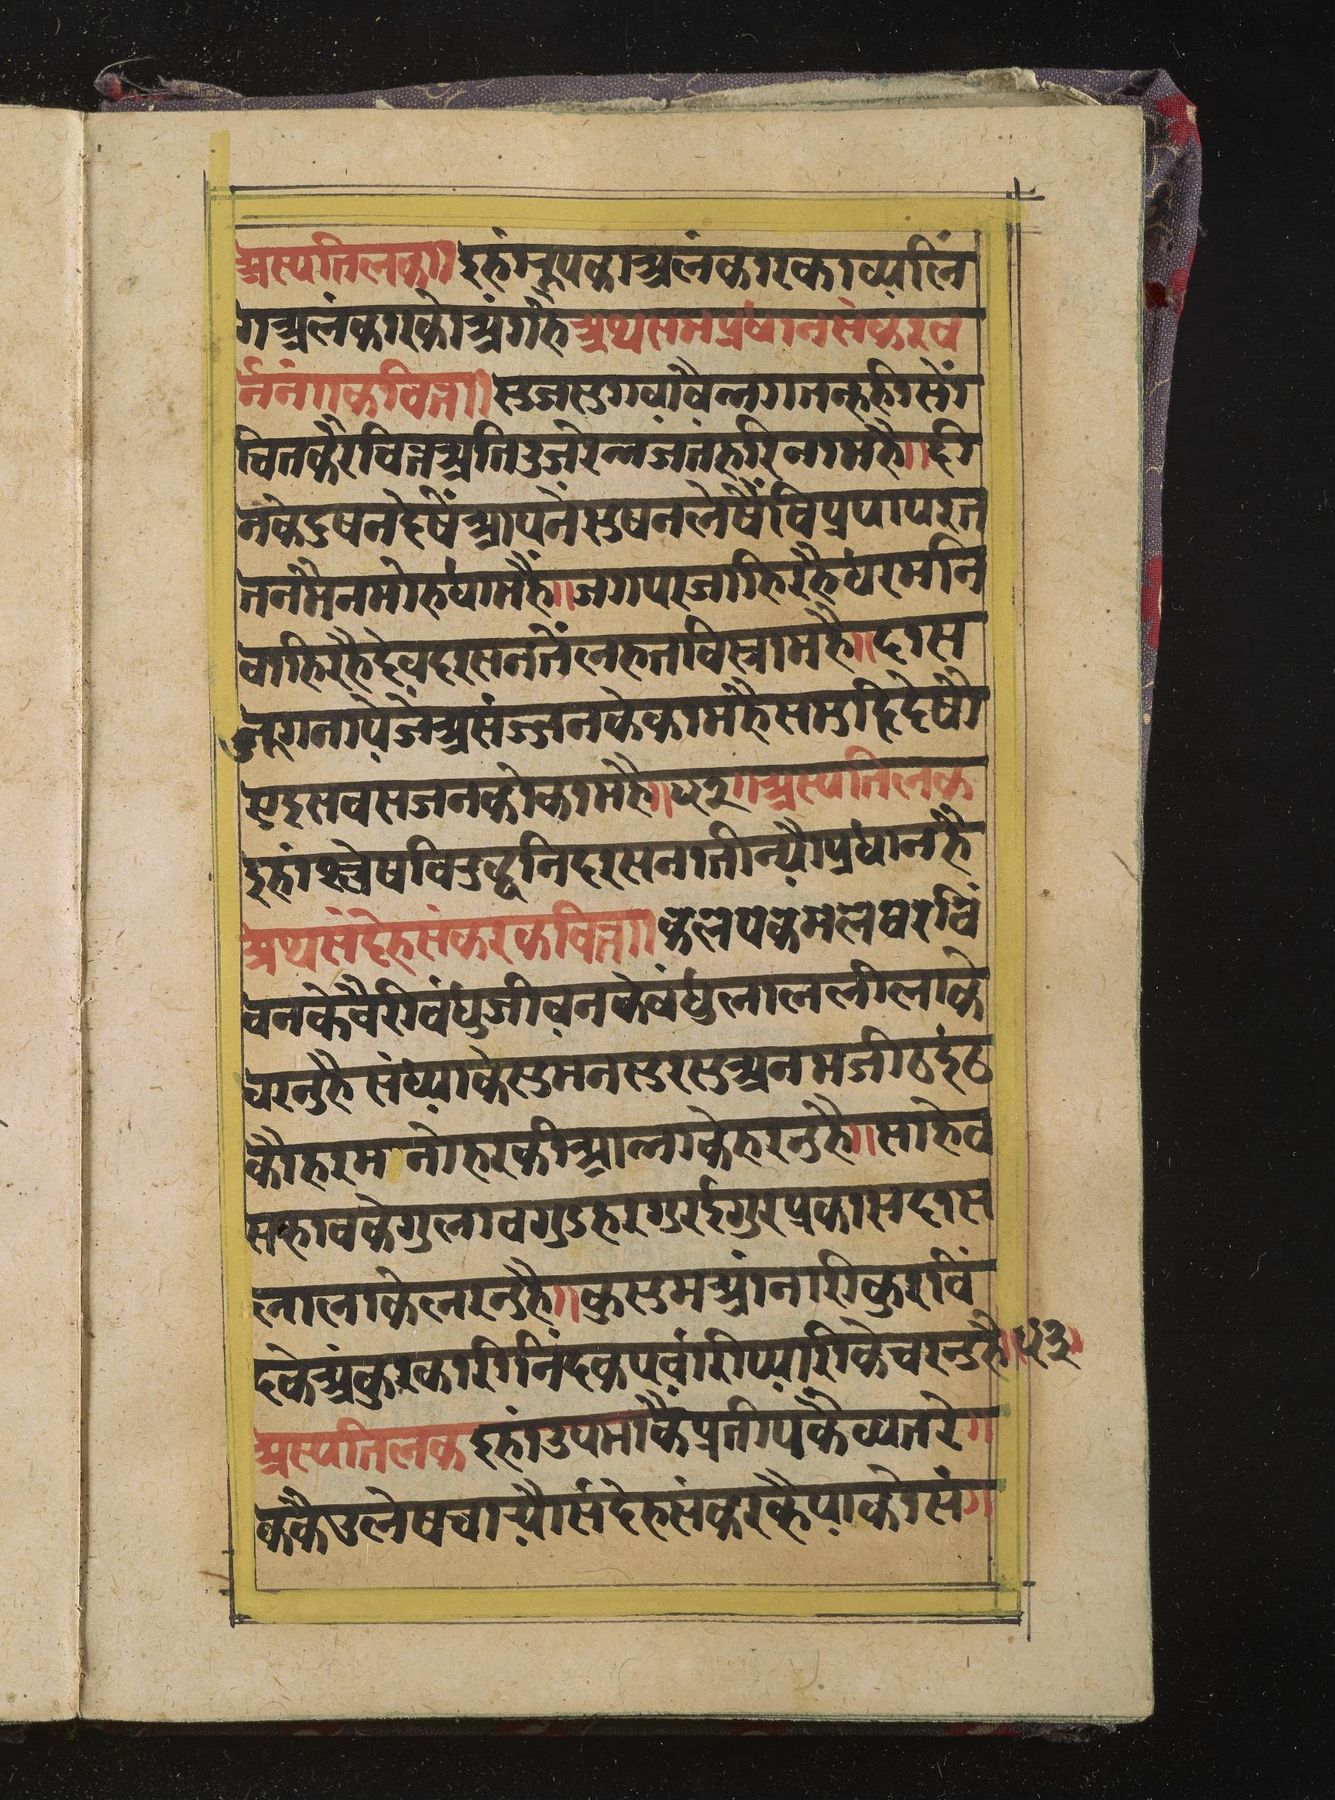 अस्यतिलक॥ इहांरुपकाअलंकारकाव्यलिं
गअलंकारकोअंगहै अथसमप्रधानसंकरव
र्ननं॥कवित्त॥ सुजसुगवावैभगतनहहीसें॑
चितकैरैवित्तअतिउजरेभजंतहरिनामहै॥दी
नकेदुषनदेषैंआपनेंसुषनलेषैंविप्रपापरत
तनंमैनमोहधामहैं॥जगपरजाहिरहैधरमनि
वाहिरहैदेवदरसनतेंलहतविस्रामहै॥दास
जूगनायेजेअसंज्जनकेकामहैसमुझिदेषौ
एइसवसजनकोकामहै॥५२॥अस्यतिलक
इहांश्लेषविरुद्धनिदरसनातीन्यौप्रधानहै
अथसंदेहसंकरकवित्त॥ कलपकमलवरविं
वनकेवैरीवंधुजीवनकेवंधुलाललीलाके
धरनुहै संध्याकेसुमनसुरसुअनमजीठईठ
कौहरमनोहरकीआभाकेहरनुहै॥साहेव
सहावकेगुलावगुडहरगुरईगुरप्रकासदास
लालाकेलरनुहै॥ कुसुमअनारीकुरविं
दकेअंकुरकारीनिंदकपवांरीप्यारीकेचरनुहै॥५३॥
अस्यतिलक इहांउपमाकैप्रतीपकैव्यतरे
ककैउलेषचार्यौसंदेहसंकरकहैयाकोसं